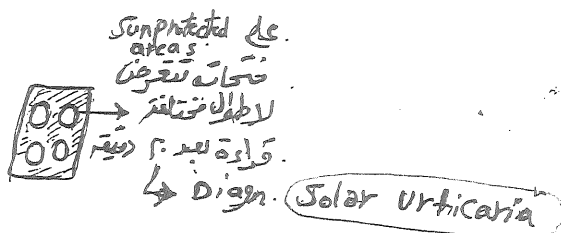 Sunprotected على
areas.
فتحاته تتعرض
لاطوال مختلفة
قراءة بعد ٢٠ دقيقة.
Diagn. Solar Urticaria